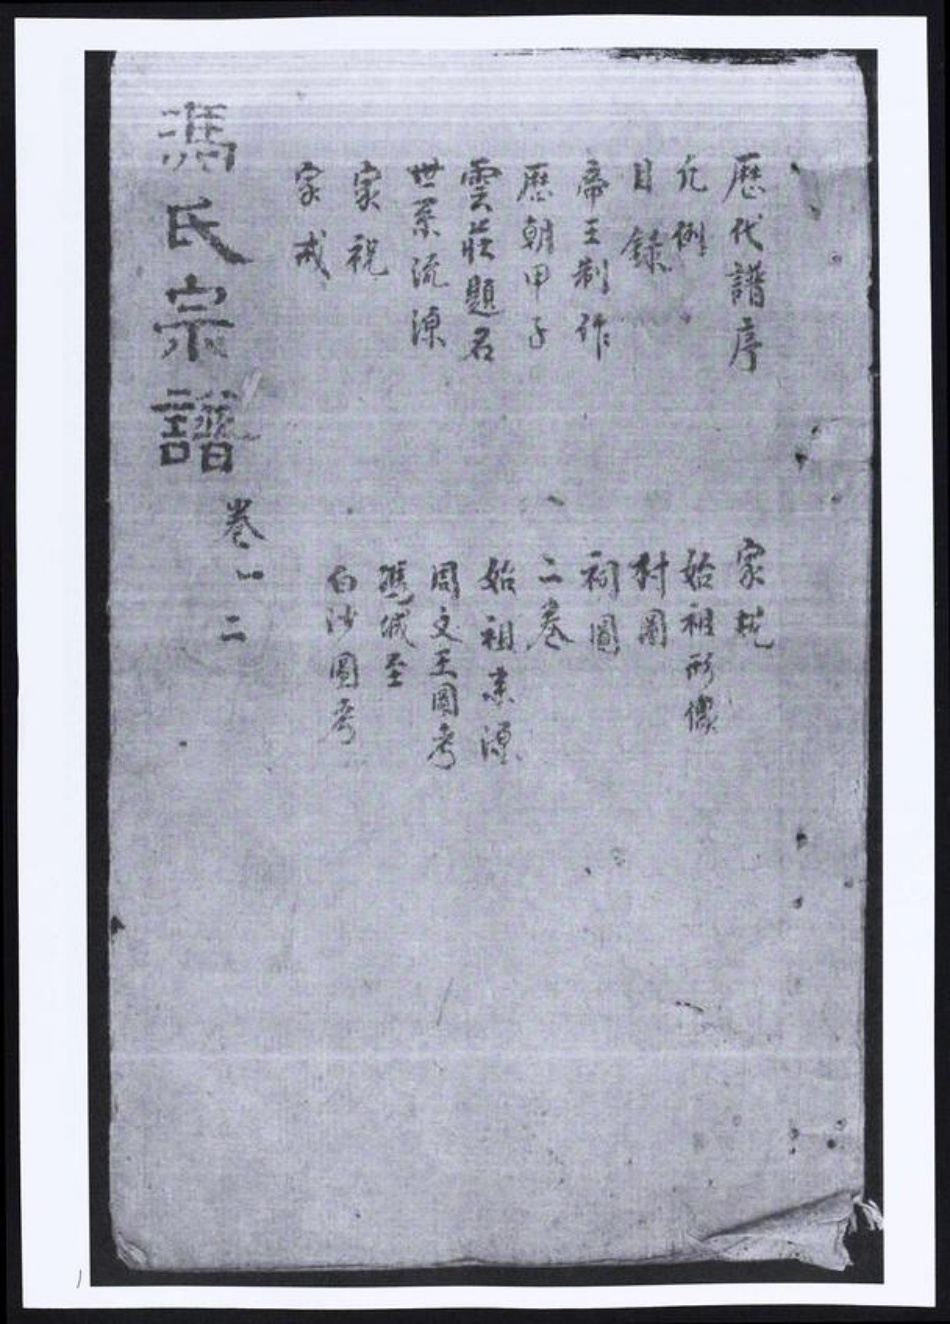 歷代譜序
凡例
目錄
帝王制作
歷朝甲子
雲莊題名
世系流源
家祝
家戒
家規
始祖形像
村圖
祠圖
二卷
始祖來源
周文王圖考
城至
白沙圖考
馮氏宗譜
卷一二